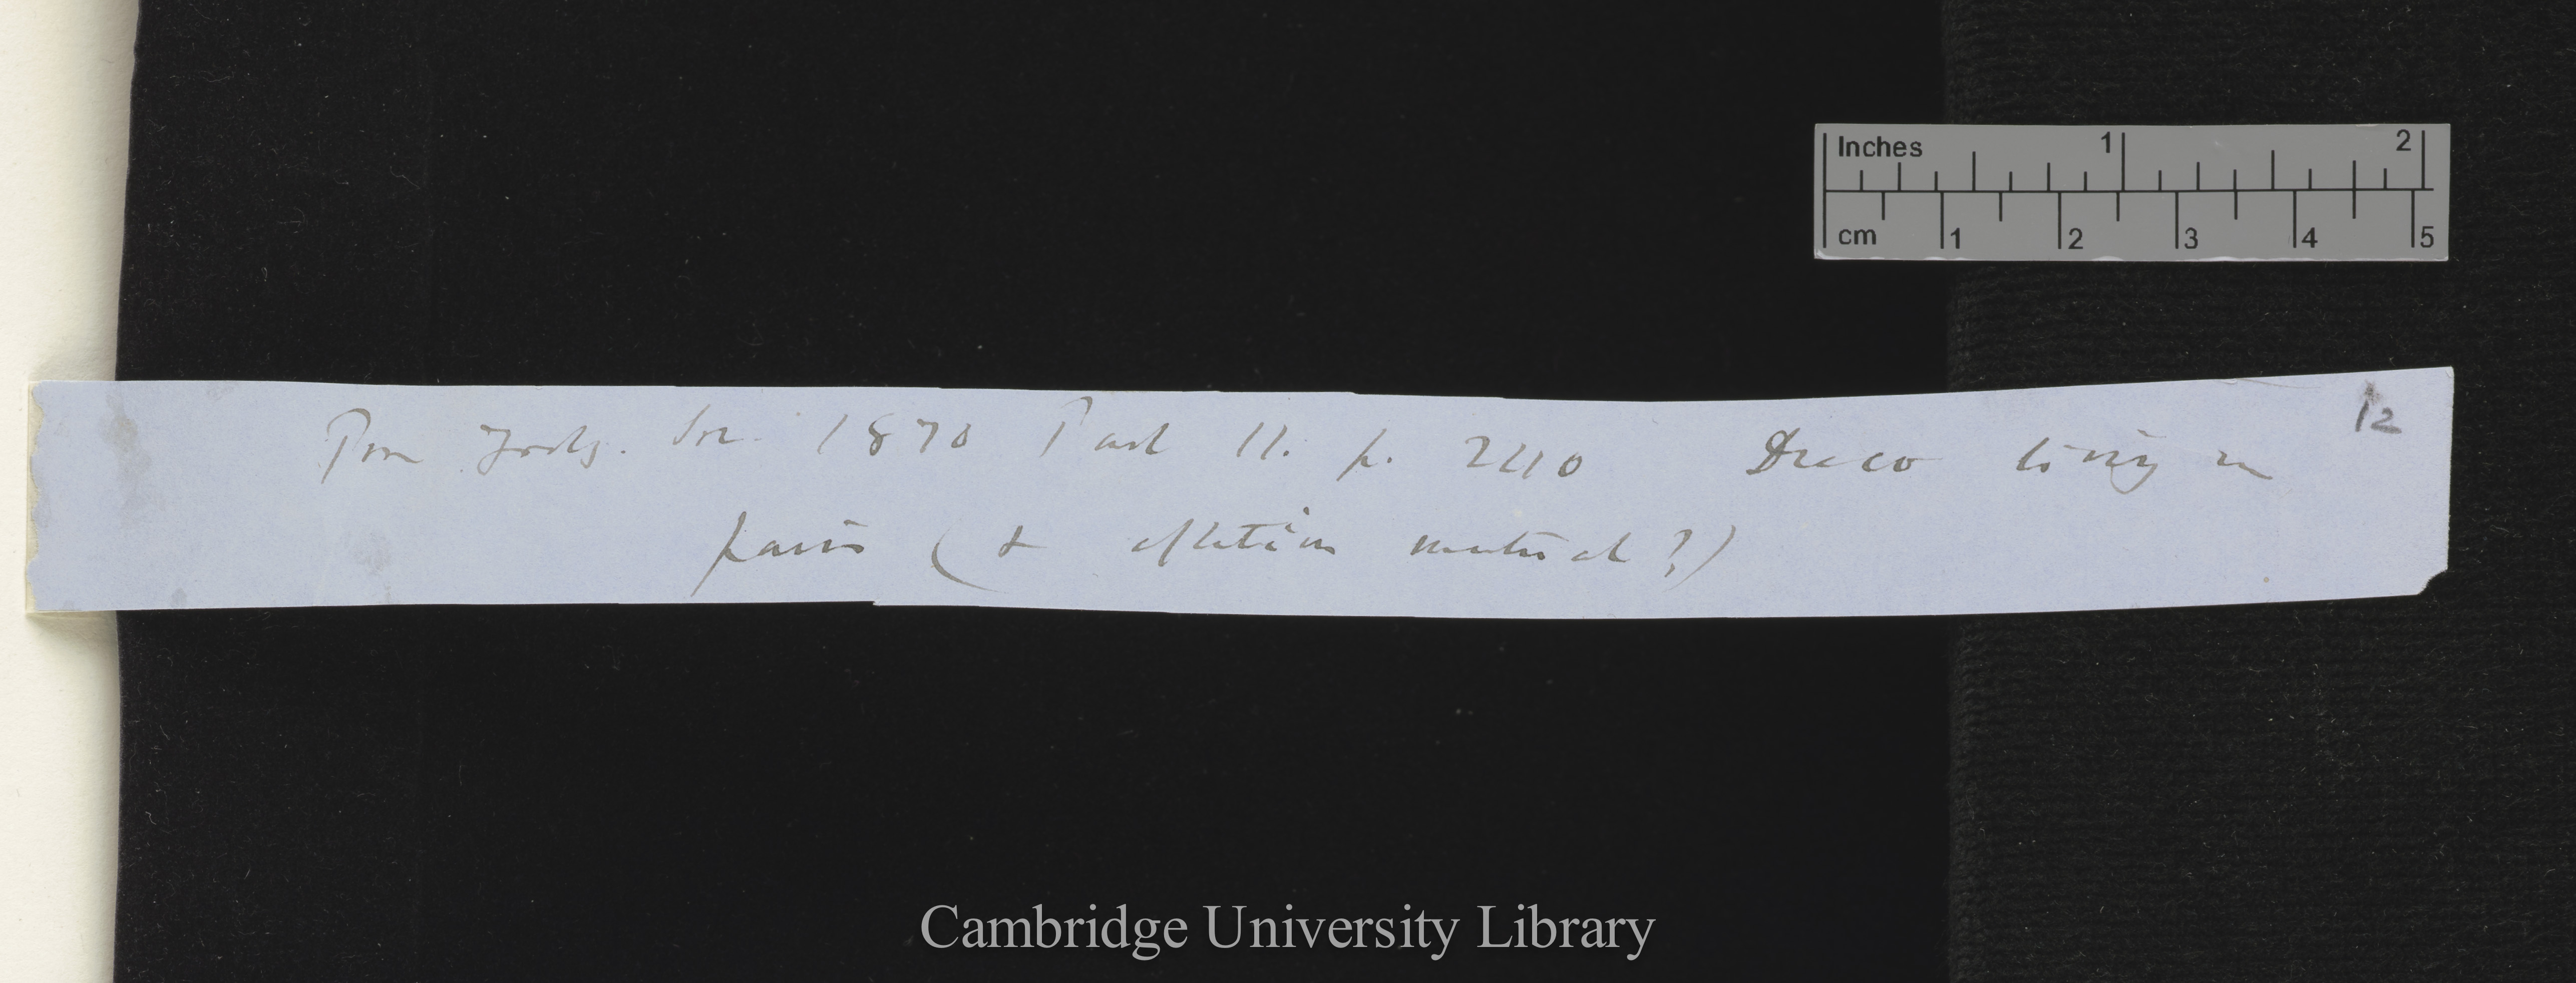 Inches 1 2
cm 1 2 3 4 5
12
Proc Zoolog. Soc. 1870 Part II. p. 240 Draco living in
pairs (& mutual?)
Cambridge University Library